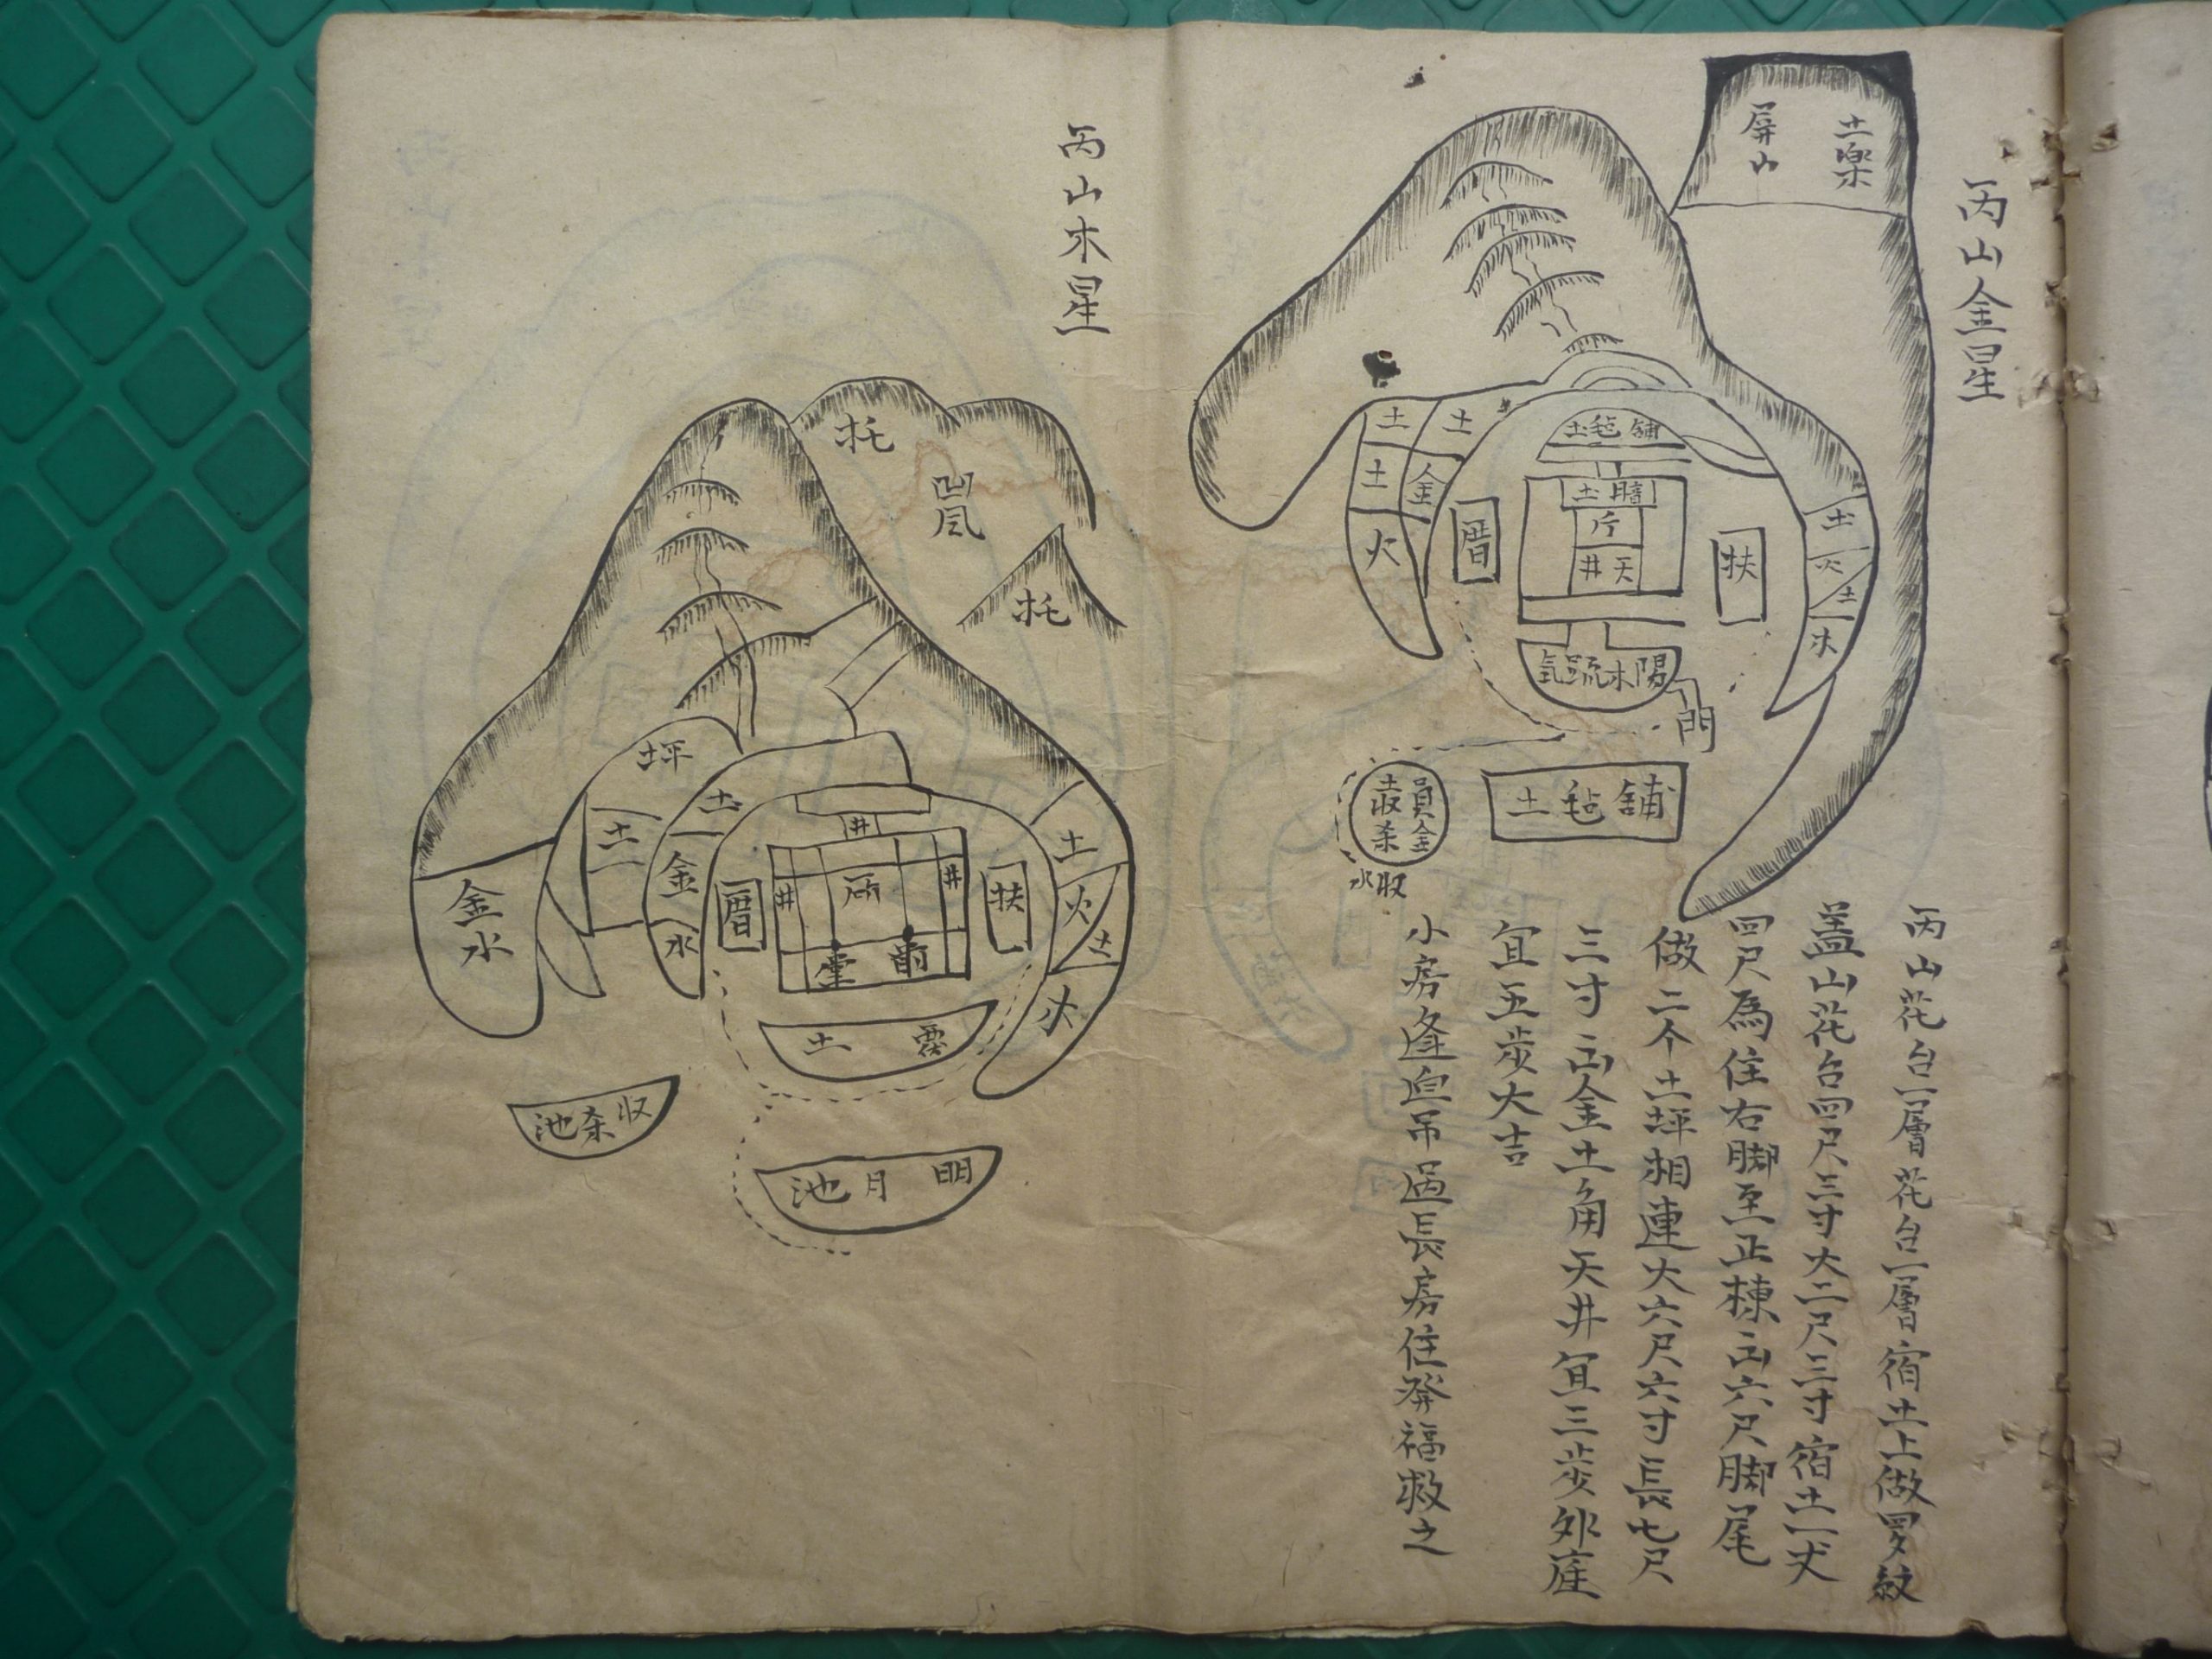 丙山金星
土楽
屏山
土
土
土
金
火
舖毡土
暗土
庁
天井
厝
扶
土
火
土
木
陽木疏氣
門
舖毡土
員金
収杀
収水
丙山花台一層花台一層宿土上做罗紋
盖山花台四尺三寸大二尺三寸宿土一丈
四尺為住右脚至正棟高六尺脚尾
做二个土坪相連大六尺六寸長七尺
三寸高金土角天井宜三步外庭
宜五步大吉
小房逢迫吊過長房住發福救之
丙山木星
托
凹風
托
坪
土
土
金
水
金水
井
井
井
厝
扶
前堂
土
火
土
木
土
収杀池
明月池